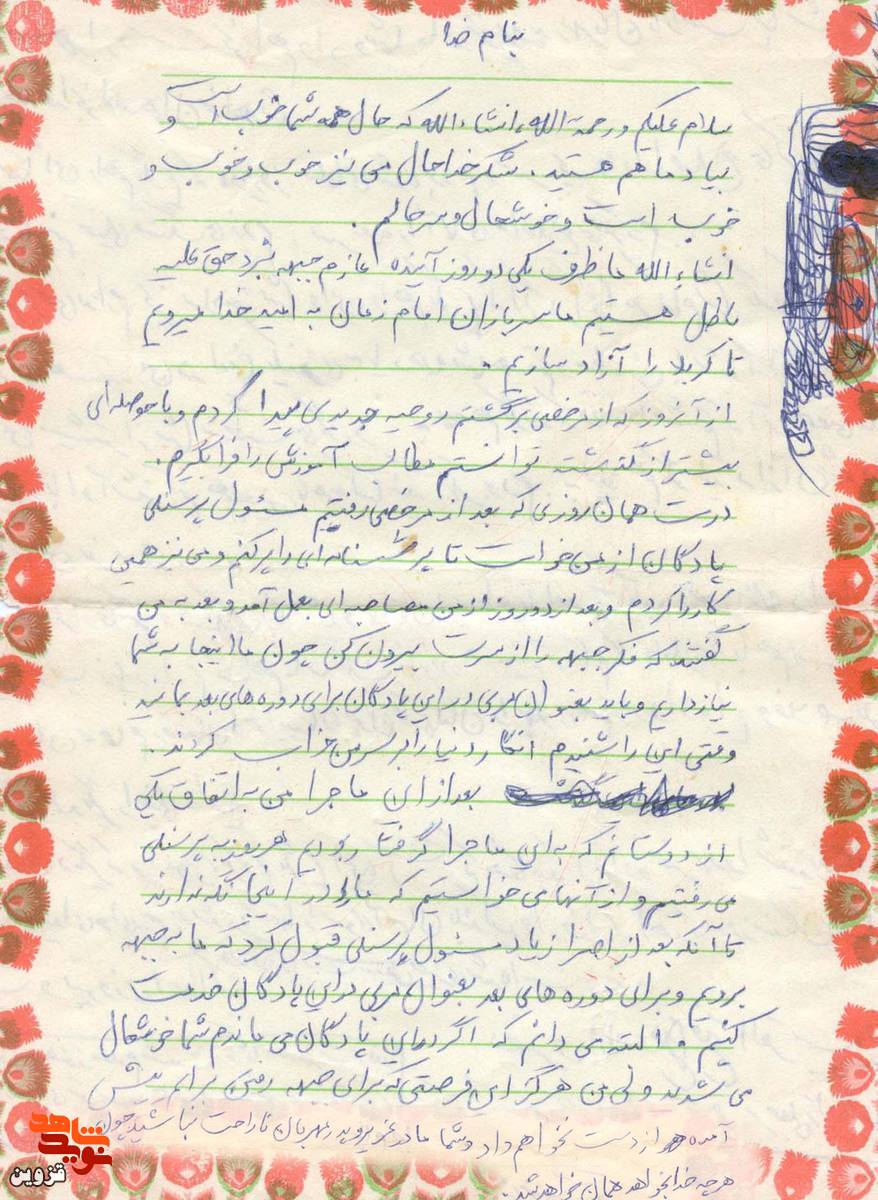 بنام خدا
سلام علیکم و رحمة الله، انشاءالله که حال همه شما خوب است و
بیاد ما هم هستید، شکر خدا حال من نیز خوب و خوب و
خوب است و خوشحال و سرحالم.
انشاءالله ما ظرف یکی دو روز آینده عازم جبهه نبرد حق علیه
باطل هستیم ما سربازان امام زمان به امید خدا میرویم
تا کربلا را آزاد سازیم.
از آنروز که از مرخصی برگشتم روحیه جدیدی پیدا کردم و با حوصله‌ای
بیشتر از گذشته توانستم مطالب آموزشی را فرا بگیرم.
درست همان روزی که بعد از مرخصی رفتیم مسئول پرسنلی
پادگان از من خواست تا پرسشنامه‌ای را پر کنم و من نیز همین
کار را کردم و بعد از دو روز از من مصاحبه‌ای بعمل آمد و بعد به من
گفتند که فکر جبهه را از سرت بیرون کن چون ما اینجا به شما
نیاز داریم و باید بعنوان مربی در این پادگان برای دوره های بعد بمانید
وقتی این را شنیدم انگار دنیا را بر سر من خراب کردند.
بعد از این ماجرا من به اتفاق یکی
از دوستانم که به این ماجرا گرفتار بودیم هر روز به پرسنلی
می رفتیم و از آنها می خواستیم که ما را در اینجا نگه ندارند
تا آنکه بعد از اصرار زیاد مسئول پرسنلی قبول کرد که ما به جبهه
برویم و برای دوره های بعد بعنوان مربی در این پادگان خدمت
کنیم و البته می دانم که اگر در این پادگان می ماندم شما خوشحال
می شدید ولی من هرگز این فرصتی که برای جبهه رفتن برایم پیش
آمده از دست نخواهم داد و شما مادر عزیز و پدر مهربان ناراحت نباشید چون
هر چه خدا بخواهد همان خواهد شد.
نوید شاهد
قزوین